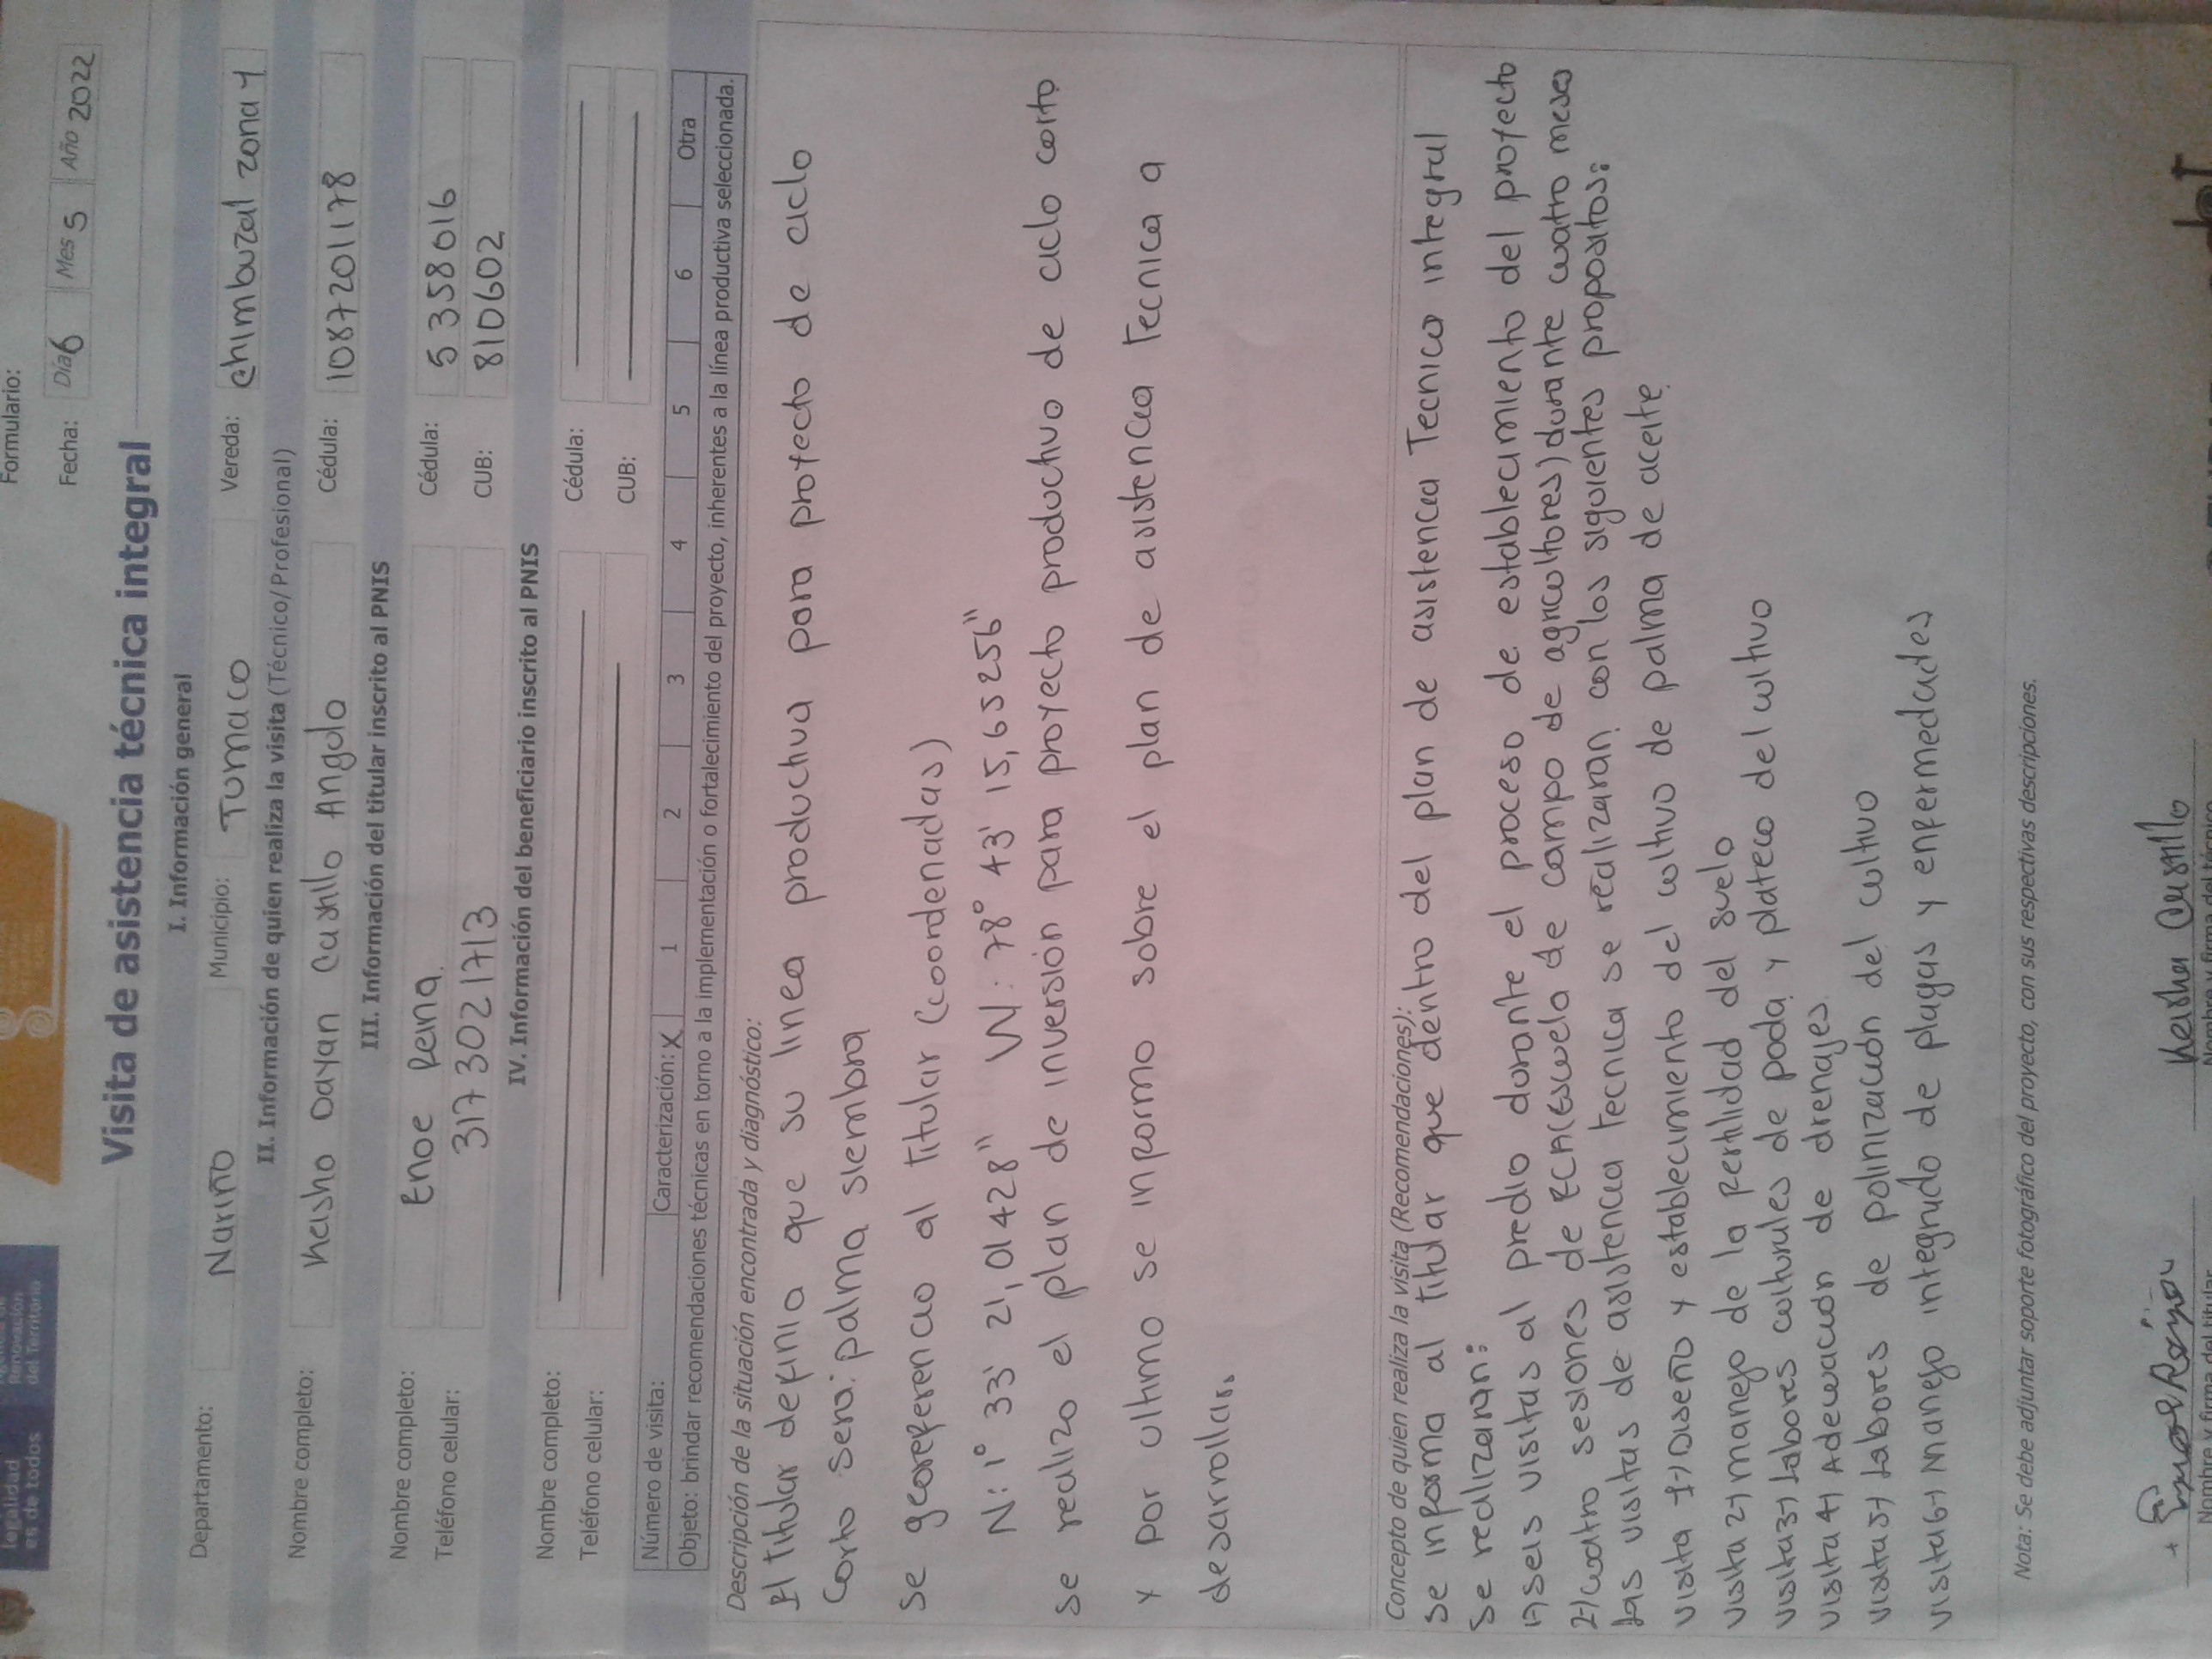 legalidad
es de todos
Renovación
del Territorio
Formulario:
Fecha: Día 6 Mes 5 Año 2022
Visita de asistencia técnica integral
I. Información general
Departamento: Nariño Municipio: Tumaco Vereda: Chimbuzal zona 4
II. Información de quien realiza la visita (Técnico/Profesional)
Nombre completo: Keisha Dayan Castillo Angulo Cédula: 1087201178
III. Información del titular inscrito al PNIS
Nombre completo: Enoe Reina Cédula: 5358016
Teléfono celular: 3173021713 CUB: 810602
IV. Información del beneficiario inscrito al PNIS
Nombre completo: Cédula:
Teléfono celular: CUB:
Número de visita: Caracterización: X 1 2 3 4 5 6 Otra
Objeto: brindar recomendaciones técnicas en torno a la implementación o fortalecimiento del proyecto, inherentes a la línea productiva seleccionada.
Descripción de la situación encontrada y diagnóstico:
El titular definio que su linea productiva para proyecto de ciclo
Corto sera: palma siembra
se georeferencio al titular (coordenadas)
N: 1° 33' 21,01428" W: 78° 43' 15,65256"
se realizo el plan de inversión para proyecto productivo de ciclo corto
y por ultimo se informo sobre el plan de asistencia Tecnica a
desarrollar.
Concepto de quien realiza la visita (Recomendaciones):
se informa al titular que dentro del plan de asistencia Tecnica integral
se realizaran:
1) seis visitas al predio durante el proceso de establecimiento del proyecto
2) cuatro sesiones de ECA(Escuela de campo de agricultores) durante cuatro meses
las visitas de asistencia tecnica se realizaran con los siguientes propositos:
visita 1-) Diseño y establecimiento del cultivo de palma de aceite.
visita 2-) manejo de la fertilidad del suelo
visita 3-) labores culturales de poda y plateo del cultivo
visita 4-) Adecuación de drenajes.
visita 5-) labores de polinización del cultivo
visita 6-) Manejo integrado de plagas y enfermedades
Nota: Se debe adjuntar soporte fotográfico del proyecto, con sus respectivas descripciones.
Keisha Castillo
Nombre y firma del titular